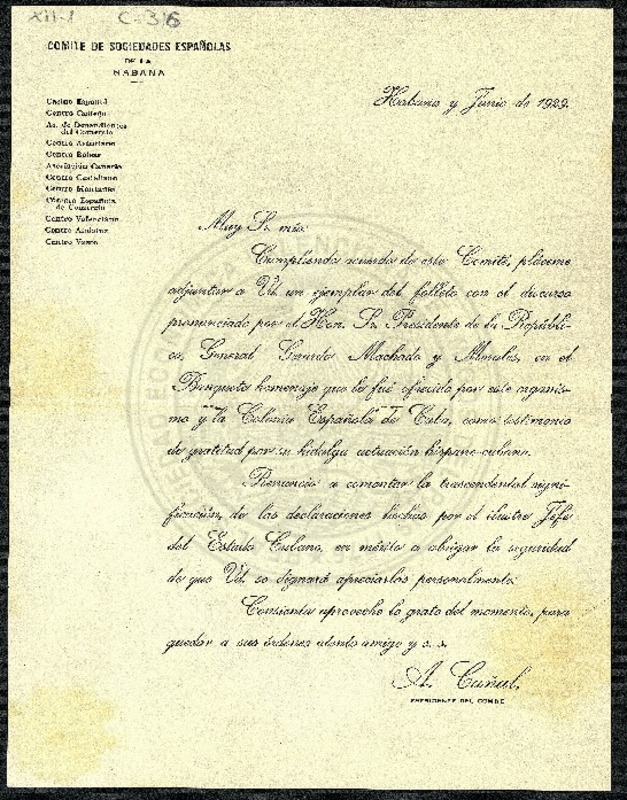 XII-1 C-316
COMITE DE SOCIEDADES ESPAÑOLAS
DE LA
HABANA
Habana y Junio de 1929.
Casino Español
Centro Gallego
As. de Dependientes
del Comercio
Centro Asturiano
Centro Balear
Asociación Canaria
Centro Castellano
Centro Montañés
Cámara Española
de Comercio
Centro Valenciano
Centro Andaluz
Centro Vasco
Muy Sr. mío:
Cumpliendo acuerdo de este Comité, pláceme
adjuntar a Vd. un ejemplar del folleto con el discurso
pronunciado por el Hon. Sr. Presidente de la Repúbli-
ca, General Gerardo Machado y Morales, en el
Banquete homenaje que le fué ofrecido por este organis-
mo y la Colonia Española de Cuba, como testimonio
de gratitud por su hidalga actuación hispano-cubana.
Renuncio a comentar la trascendental signi-
ficación, de las declaraciones hechas por el ilustre Jefe
del Estado Cubano, en mérito a abrigar la seguridad
de que Vd. se dignará apreciarlas personalmente.
Consienta aproveche lo grato del momento, para
quedar a sus órdenes atento amigo y s. s.
A.
PRESIDENTE DEL COMITE